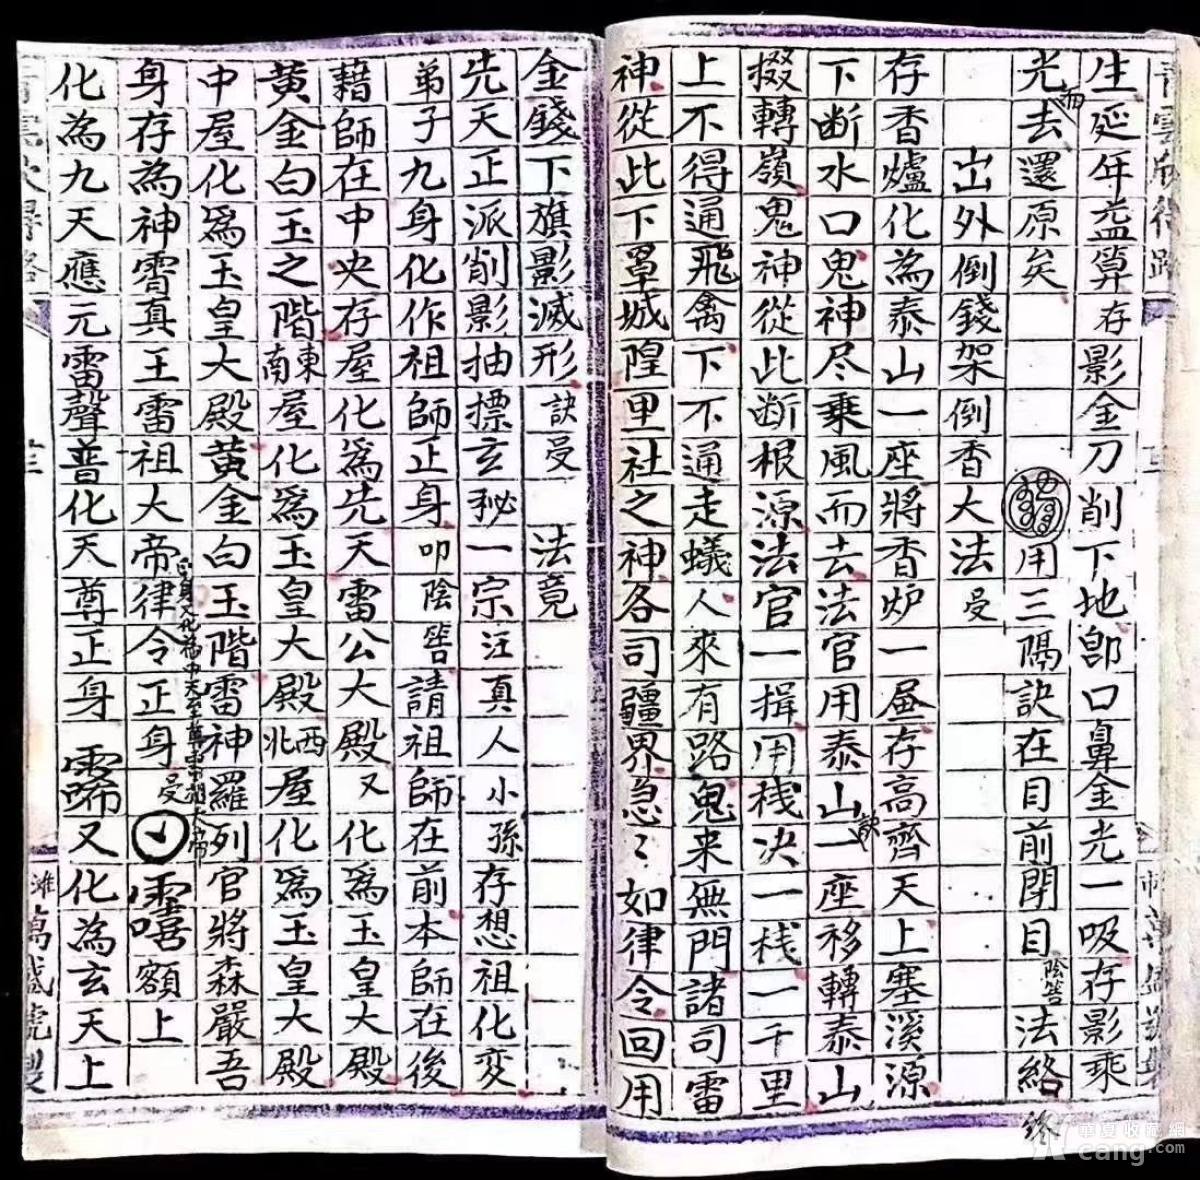 生延年益算存影金刀削下地卽口鼻金光一吸存影乘
光而去還原矣
用三隅訣在目前閉目陰筶法絡
终
岀外倒錢架倒香大法
受
存香爐化為泰山一座將香炉一㞐存高齊天上塞溪源
下断水口鬼神尽乘風而去法官用泰山一座移轉泰山
掇轉嶺鬼神從此断根源法官一揖用栈决一栈一千里
上不得通飛禽下不通走蟻人來有路鬼来無門諸司雷
神從此下罩城隍里社之神各司疆界急々如律令回用
金錢下旗影滅形
訣受
法竟
先天正派削影抽摽玄秘一宗汪真人小孫存想祖化变
弟子九身化作祖師正身叩陰筶請祖師在前本師在後
藉師在中央存屋化為先天雷公大殿又化為玉皇大殿
黄金白玉之階東南屋化為玉皇大殿西北屋化為玉皇大殿
中屋化爲玉皇大殿黄金白玉階雷神羅列官將森嚴吾
身存為神霄真王雷祖大帝律令正身受
額上
化為九天應元雷聲普化天尊正身
又化為玄天上
華夏收藏網
cang.com